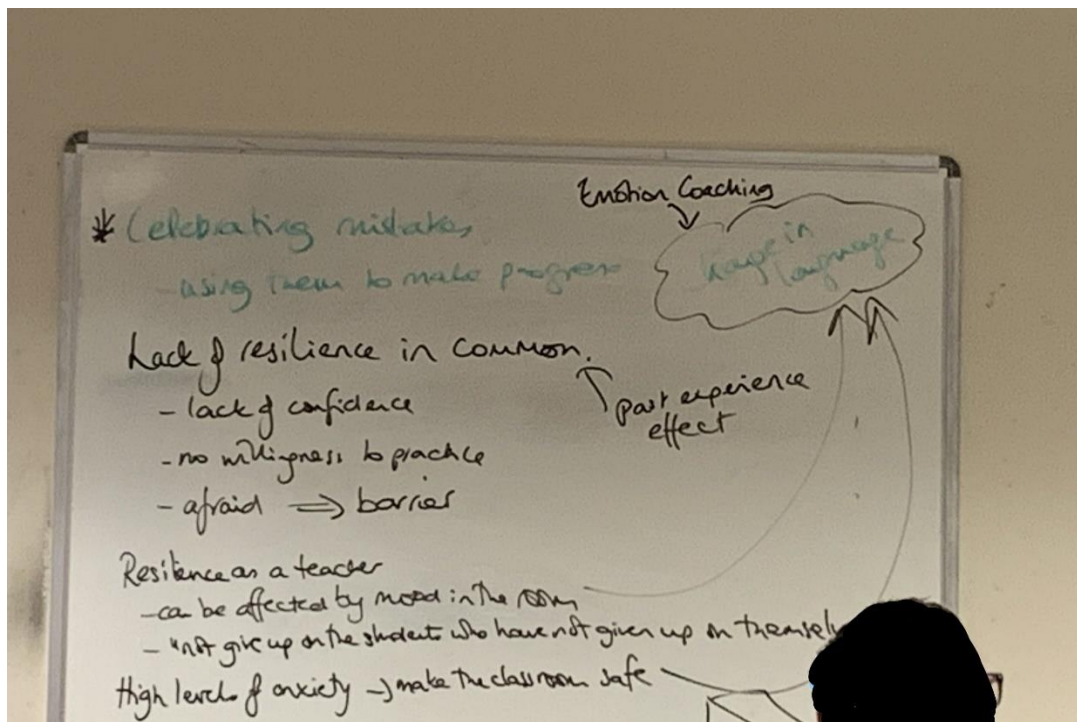 Emotion Coaching
* Celebrating mistakes
- using them to make progress
change in
language
Lack of resilience in common.
- lack of confidence
past experience
effect
- no willigness to practice
- afraid ⇒ barrier
Resilience as a teacher
- can be affected by mood in the room
- "not give up on the students who have not given up on themselv
High levels of anxiety → make the classroom safe